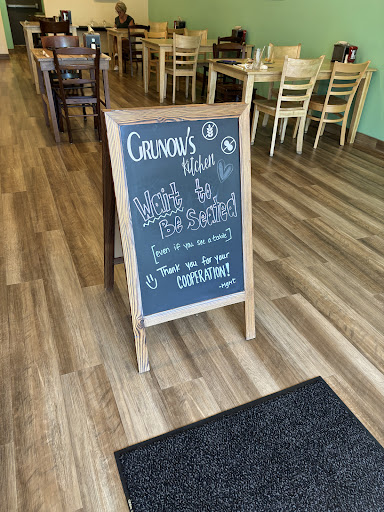 GRUNOW'S
Kitchen
Wait to
Be Seated
[even if you see a table]
Thank you for your
COOPERATION!
-Mgmt